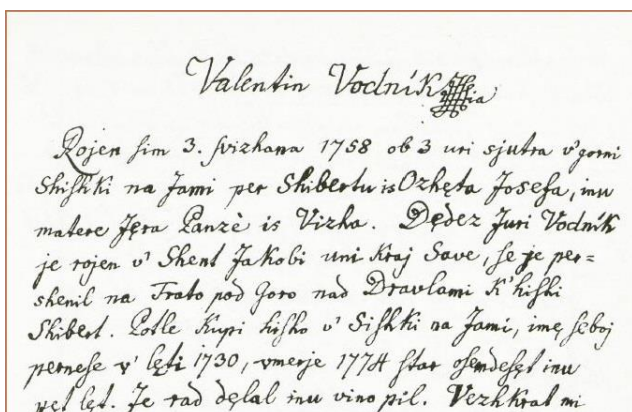 Valentin Vodnik
Rojen ſim 3. ſvizhana 1758 ob 3 uri sjutra v' gorni
Shishki na Jami per Shibertu is Ozhęta Josefa, inu
matere Jęra Panzè is Vizha. Dędez Juri Vodnik
je rojen v' Shent Jakobi uni kraj Save, ſe je per=
shenil na Trato pod Goro nad Dravlami k' hiſhi
Shibert. Potle kupi hiſho v' Siſhki na Jami, imę ſeboj
pernese v' lęti 1730, vmerje 1774 ſtar oſemdeſęt inu
pęt lęt. Je rad dęlal inu vino pil. Vezhkrat mi